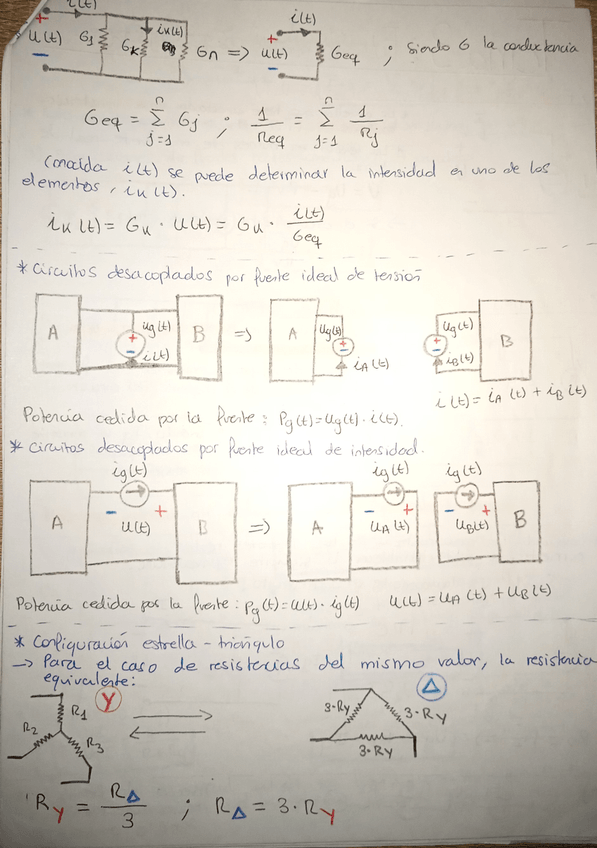 i(t)
+
u(t)
-
G1
GK
iK(t)
Gn
=>
i(t)
+
u(t)
-
Geq
; siendo G la conductancia
Geq = n Σ j=1 Gj ; 1/Req = n Σ j=1 1/Rj
Conocida i(t) se puede determinar la intensidad en uno de los
elementos, iK(t).
iK(t) = GK · u(t) = GK · i(t)/Geq
* Circuitos desacoplados por fuente ideal de tensión
A
ug(t)
+
-
i(t)
B
=>
A
ug(t)
+
-
iA(t)
ug(t)
+
-
iB(t)
B
i(t) = iA(t) + iB(t)
Potencia cedida por la fuente: Pg(t) = ug(t) · i(t).
* Circuitos desacoplados por fuente ideal de intensidad.
ig(t)
A
- +
u(t)
B
=>
A
ig(t)
- +
uA(t)
ig(t)
- +
uB(t)
B
Potencia cedida por la fuente: Pg(t) = u(t) · ig(t) u(t) = uA(t) + uB(t)
* Configuración estrella - triángulo
-> Para el caso de resistecias del mismo valor, la resistencia
equivalente:
R1
Y
R2
R3
Δ
3·RY
3·RY
3·RY
RY = RΔ/3 ; RΔ = 3·RY